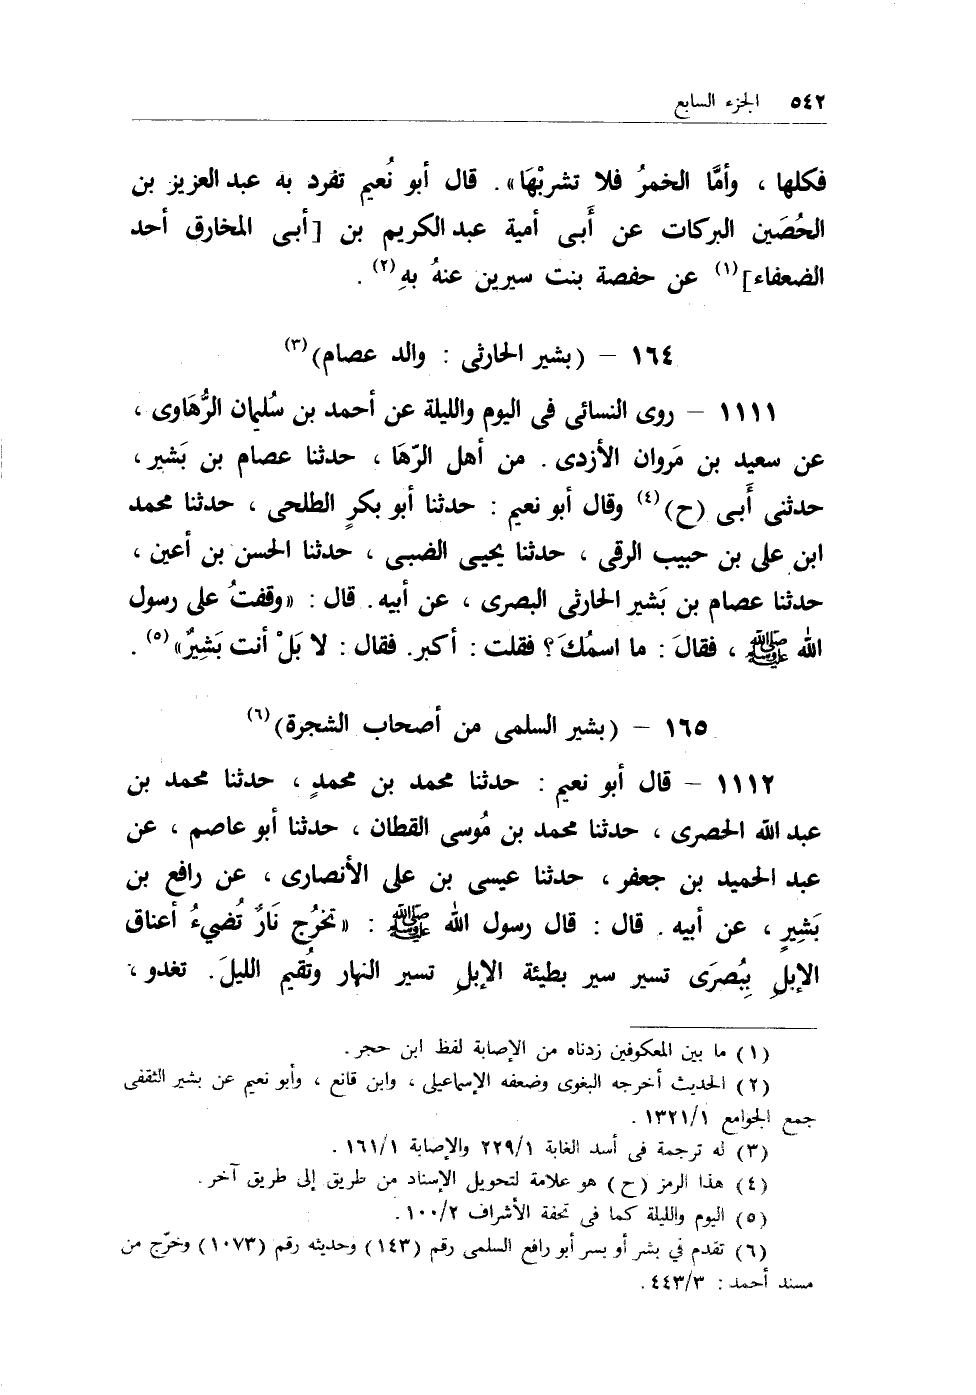 ٥٤٢ الجزء السابع
فكلها ، وأمَّا الخمرُ فلا تشربْهَا» . قال أبو نُعيم تفرد به عبد العزيز بن
الحُصَين البركات عن أَبى أمية عبد الكريم بن [أبى المخارق أحد
الضعفاء](١) عن حفصة بنت سيرين عنهُ بهِ(٢) .
١٦٤ – (بشير الحارثى : والد عصام)(٣)
١١١١ – روى النسائى فى اليوم والليلة عن أحمد بن سُليمان الرُّهَاوى ،
عن سعيد بن مَروان الأزدى . من أهل الرّهَا ، حدثنا عصام بن بَشير ،
حدثنى أَبى (ح)(٤) وقال أبو نعيم : حدثنا أبو بكرٍ الطلحى ، حدثنا محمد
ابن على بن حبيب الرقى ، حدثنا يحيى الضبى ، حدثنا الحسن بن أعين ،
حدثنا عصام بن بَشير الحارثى البصرى ، عن أبيه . قال : «وقفتُ على رسول
الله ﷺ ، فقالَ : ما اسمُكَ؟ فقلت : أكبر. فقال : لا بَلْ أنت بَشِيرٌ»(٥) .
١٦٥ – (بشير السلمى من أصحاب الشجرة)(٦)
١١١٢ – قال أبو نعيم : حدثنا محمد بن محمدٍ ، حدثنا محمد بن
عبد الله الحصرى ، حدثنا محمد بن مُوسى القطان ، حدثنا أبو عاصم ، عن
عبد الحميد بن جعفر ، حدثنا عيسى بن على الأنصارى ، عن رافع بن
بَشِيرٍ ، عن أبيه . قال : قال رسول الله ﷺ : «تخرُج نَارٌ تُضيءُ أعناق
الإبلِ بِبُصرَى تسير سير بطيئة الإبلِ تسير النهار وتُقيم الليلَ . تغدو ،
(١) ما بين المعكوفين زدناه من الإصابة لفظ ابن حجر .
(٢) الحديث أخرجه البغوى وضعفه الإسماعيلى ، وابن قانع ، وأبو نعيم عن بشير الثقفى
جمع الجوامع ١٣٢١/١ .
(٣) له ترجمة فى أسد الغابة ٢٢٩/١ والإصابة ١٦١/١ .
(٤) هذا الرمز (ح) هو علامة لتحويل الإسناد من طريق إلى طريق آخر .
(٥) اليوم والليلة كما فى تحفة الأشراف ١٠٠/٢ .
(٦) تقدم في بشر أو بسر أبو رافع السلمى رقم (١٤٣) وحديثه رقم (١٠٧٣) وخرّج من
مسند أحمد : ٤٤٣/٣ .